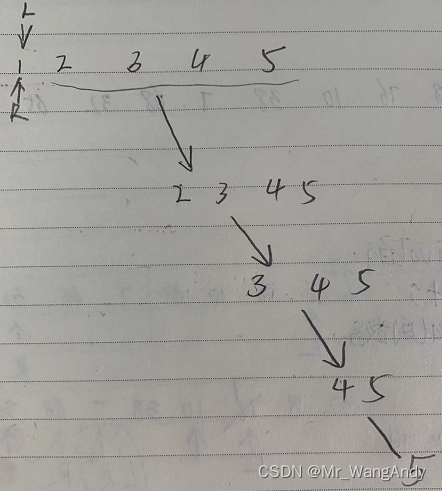 L
1 2 3 4 5
R
2 3 4 5
3 4 5
4 5
5
CSDN @Mr_WangAndy